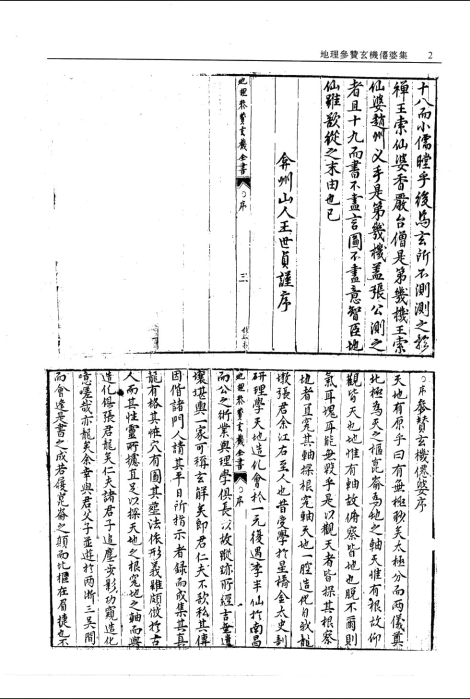 地理參贊玄機僊婆集 2
十八而小儒瞠乎後焉玄所不測測之於
禪王索仙婆香嚴台僧是第幾機王索
仙婆趙州义手是第幾機盖張公測之
者且十九而書不盡言圖不盡意智臣也
仙雖歡從之末由也已
弇州山人王世貞謹序
地理參贊玄機全書 序 三
序 參贊玄機僊婆序
天地有原乎曰有無極秒矣太極分而兩儀奠
北極為天之樞崑崙為地之軸天惟有根故仰
觀皆天也地惟有軸故俯察皆地也脱不爾則
氣耳塊耳能無毀乎是以觀天者皆探其根察
地者直究其軸探根究軸天地一腔造化自我龍
張君余江右至人也昔受學於星橋金太史
研理學天地造化會於一元後遇李半仙於南昌
地理參贊玄機全書 序
而公之術業與理學俱長以故蹤跡所經吉壟遺
壞堪輿一家可稱玄解矣即君仁夫不欲私其傳
因偕諸門人請其平日所指示者録而成集其真
龍有格其恠穴有圖其塟法依形義雖頗倣於古
人而其性靈所擴直足以探天地之根究地之軸而與
造化侶張君龍矣仁夫諸君子追塵步影功窺造化
噫嗟哉亦龍矣余幸與君父子並遊於两浙三吴間
而會逢是書之成若履崑崙之顛而北樞在眉捷也不